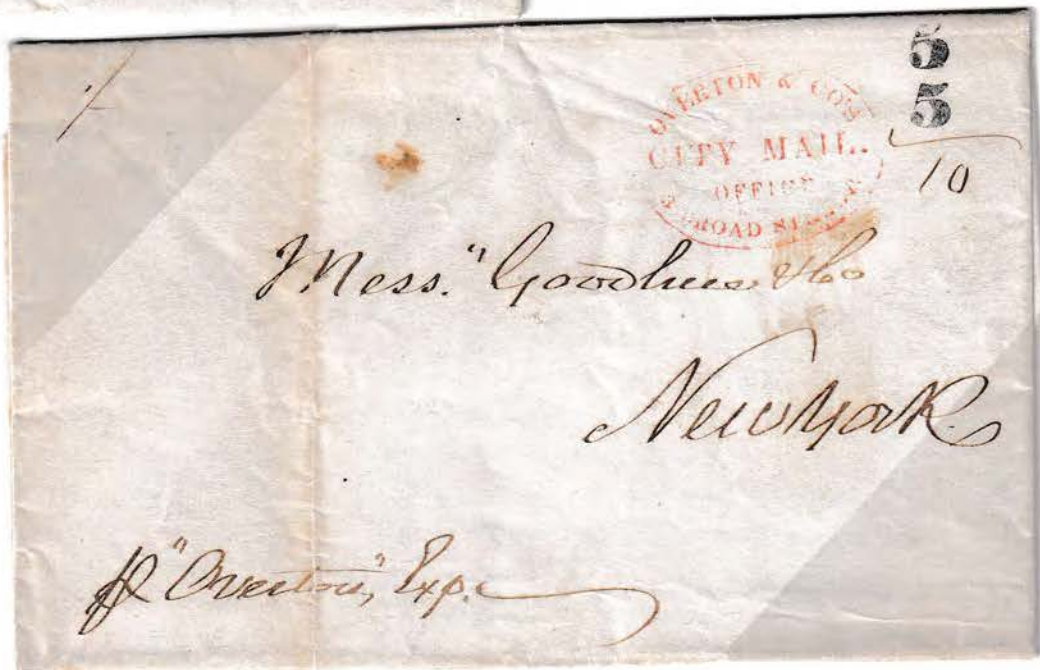 5
5
10
OVERTON & CO'S
CITY MAIL.
OFFICE
3 BROAD STREET
Mess." Goodhue & Co
New York
p "Overton", Exp.